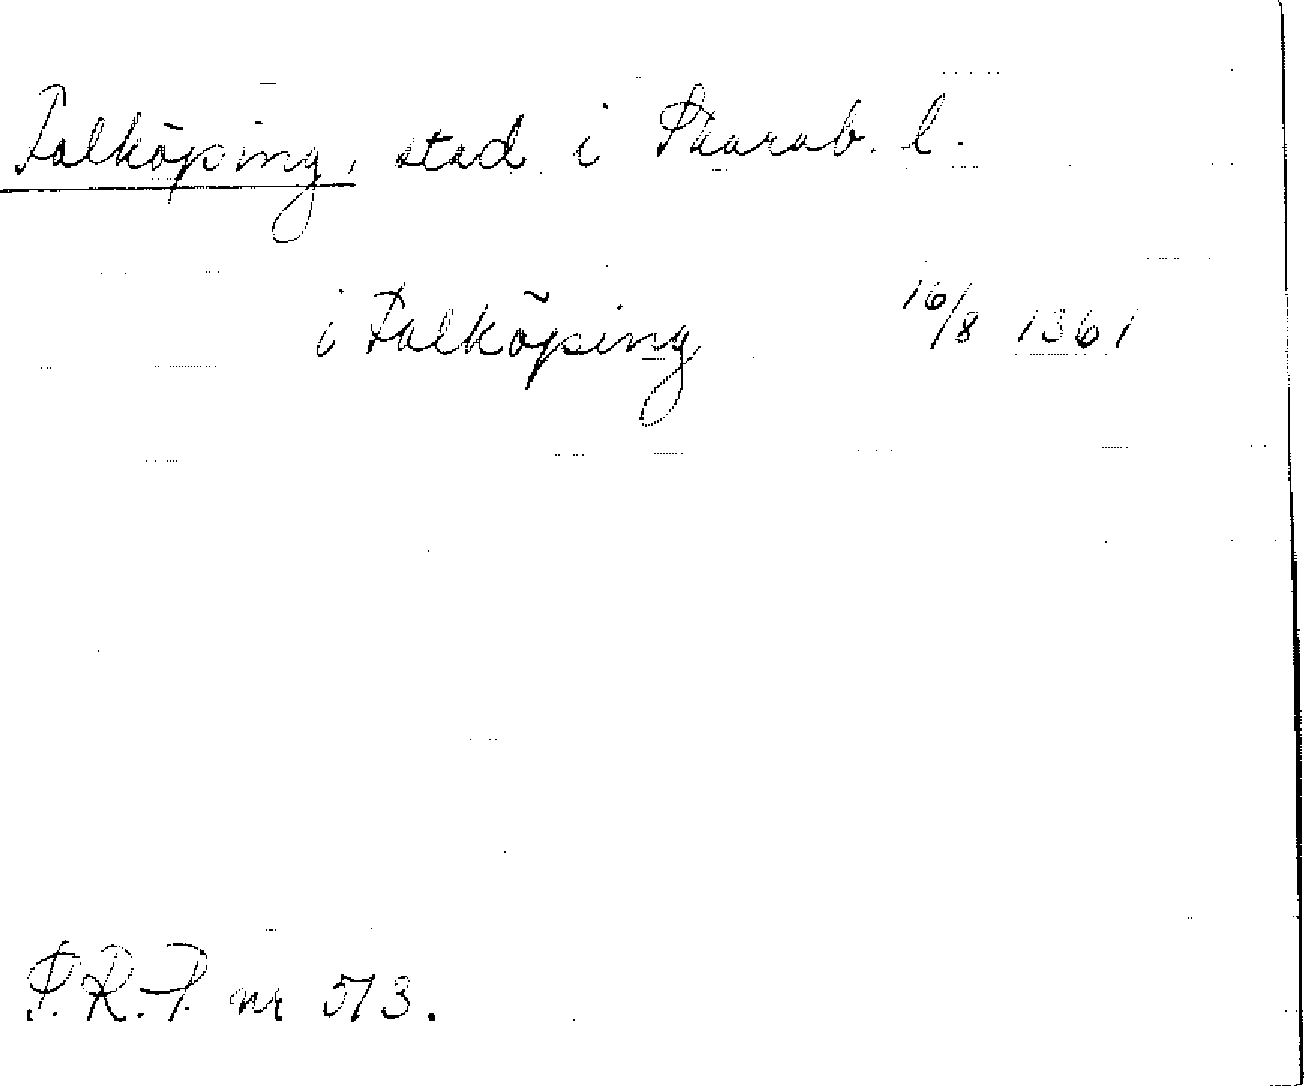 Falköping, stad i Skarab. l.
i Falköping 16/8 1361
S.R.-P. nr 513.